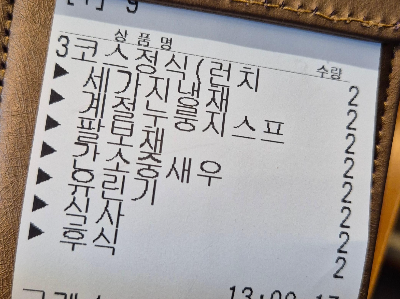 [T] 9
상 품 명 수량
3코스정식(런치 2
▶ 세가지냉채 2
▶ 계절누룽지스프 2
▶ 팔보채 2
▶ 깐소중새우 2
▶ 유린기 2
▶ 식사 2
▶ 후식 2